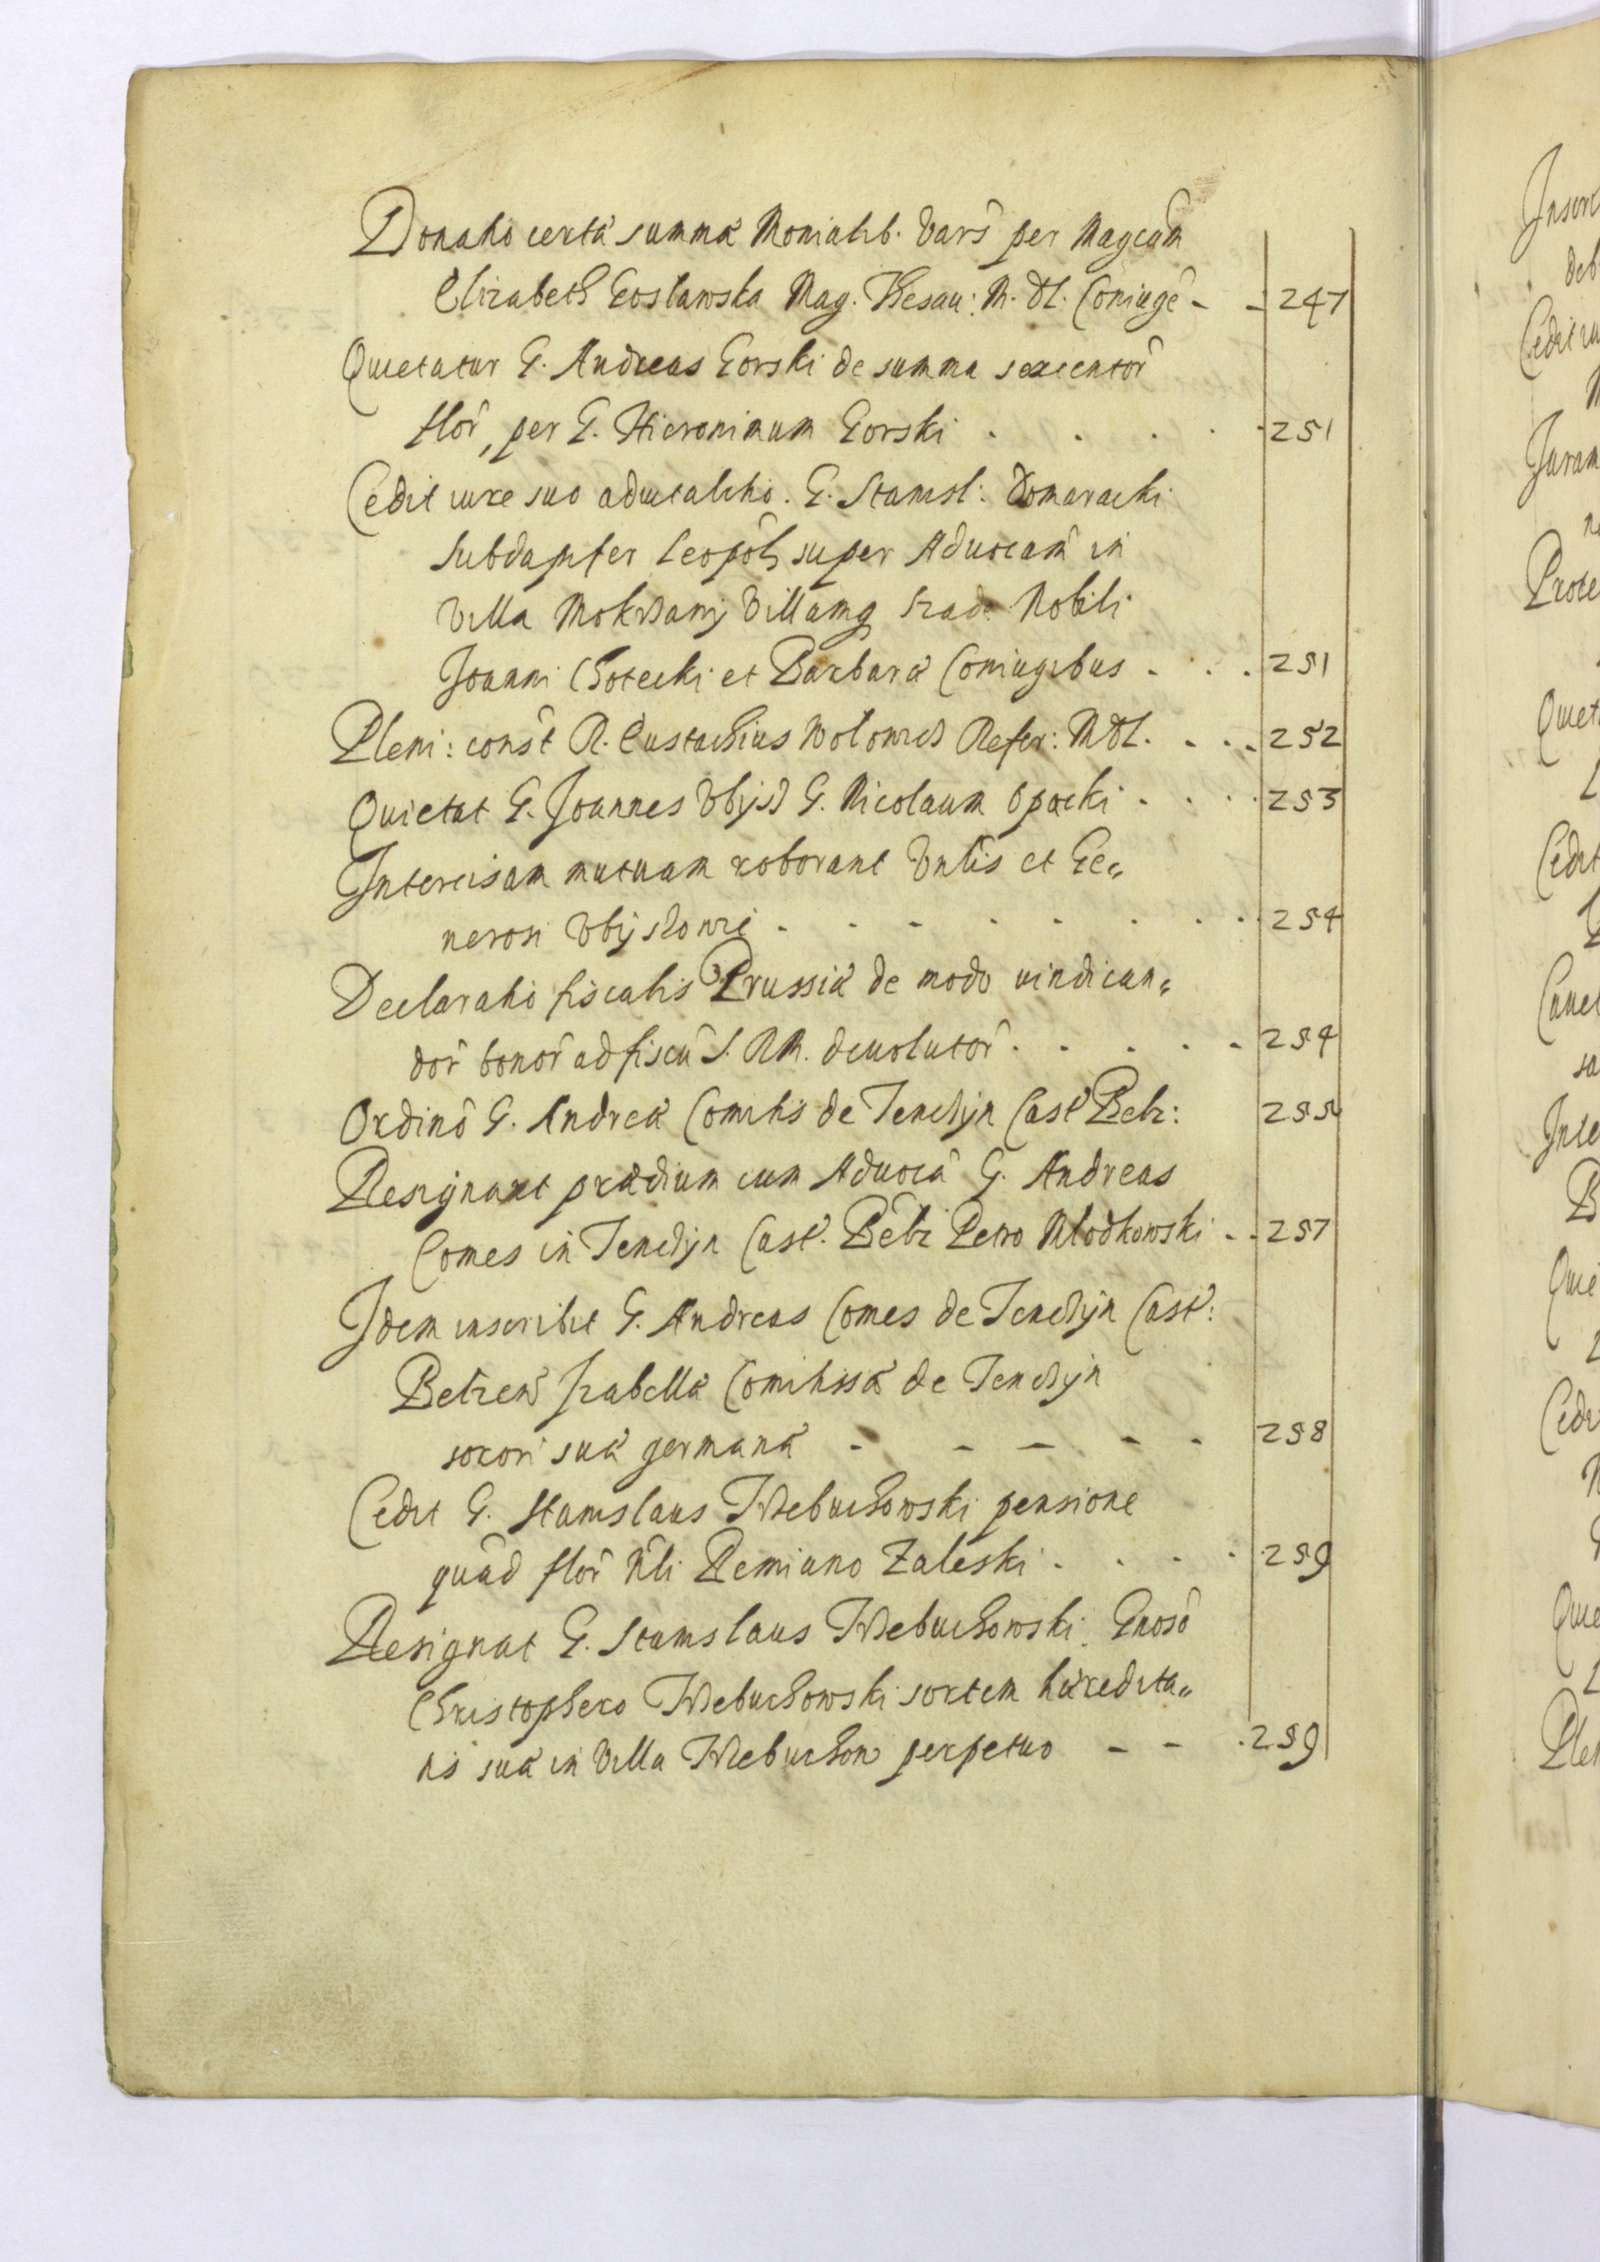 Donatio certæ summæ Monialib. Varŝ per Magcâm
Elizabeth Goslawska Mag. Thesau: M. DL. Coniugê - - 247
Quietatur G. Andreas Gorski de summa sexcentor̂
flor̂, per G. Hieronimum Gorski . . . . . 251
Cedit iure suo aduitalitio. G. Stanisl: Domaracki
Subdapifer Leopôl, super Aduocam̂ in
Villa Mokrzany Villamq Nobili
Joanni Chotecki et Barbaræ Coniugibus . . . 251
Pleni: const̂ R. Eustachius Wolowicz Refer: MDL. . . . 252
Quietat G. Joannes Vbijsz G. Nicolaum Opacki . . . . 253
Intercisam mutuam roborant Vntîs et Ge„
nerosi Vbijszowie . . . . . . . . 254
Declaratio fiscalis Prussiæ de modo vindican„
dor̂ bonor̂ ad fiscû S. RM. deuolutor̂ . . . . . 254
Ordinô G. Andreæ Comitis de Tenczÿn Cast̂ Belz: 255
Resignant prædium cum Aduocâ G. Andreas
Comes in Tenczÿn Cast. Belz Petro Mlodkowski . . 257
Idem inscribit G. Andreas Comes de Tenczÿn Cast̂:
Belzen̂ Izabellæ Comitissæ de Tenczÿn
sorori suæ germanæ - - - - - 258
Cedit G. Stanislaus Trzebuchowski pensione
quâd flor̂ Nli Demiano Zaleski . . . . 259
Resignat G. Stanislaus Trzebuchowski Gnosô
Christophero Trzebuchowski sortem hæredita„
tis suæ in Villa Trzebuchow perpetuo - - . 259
Cedit